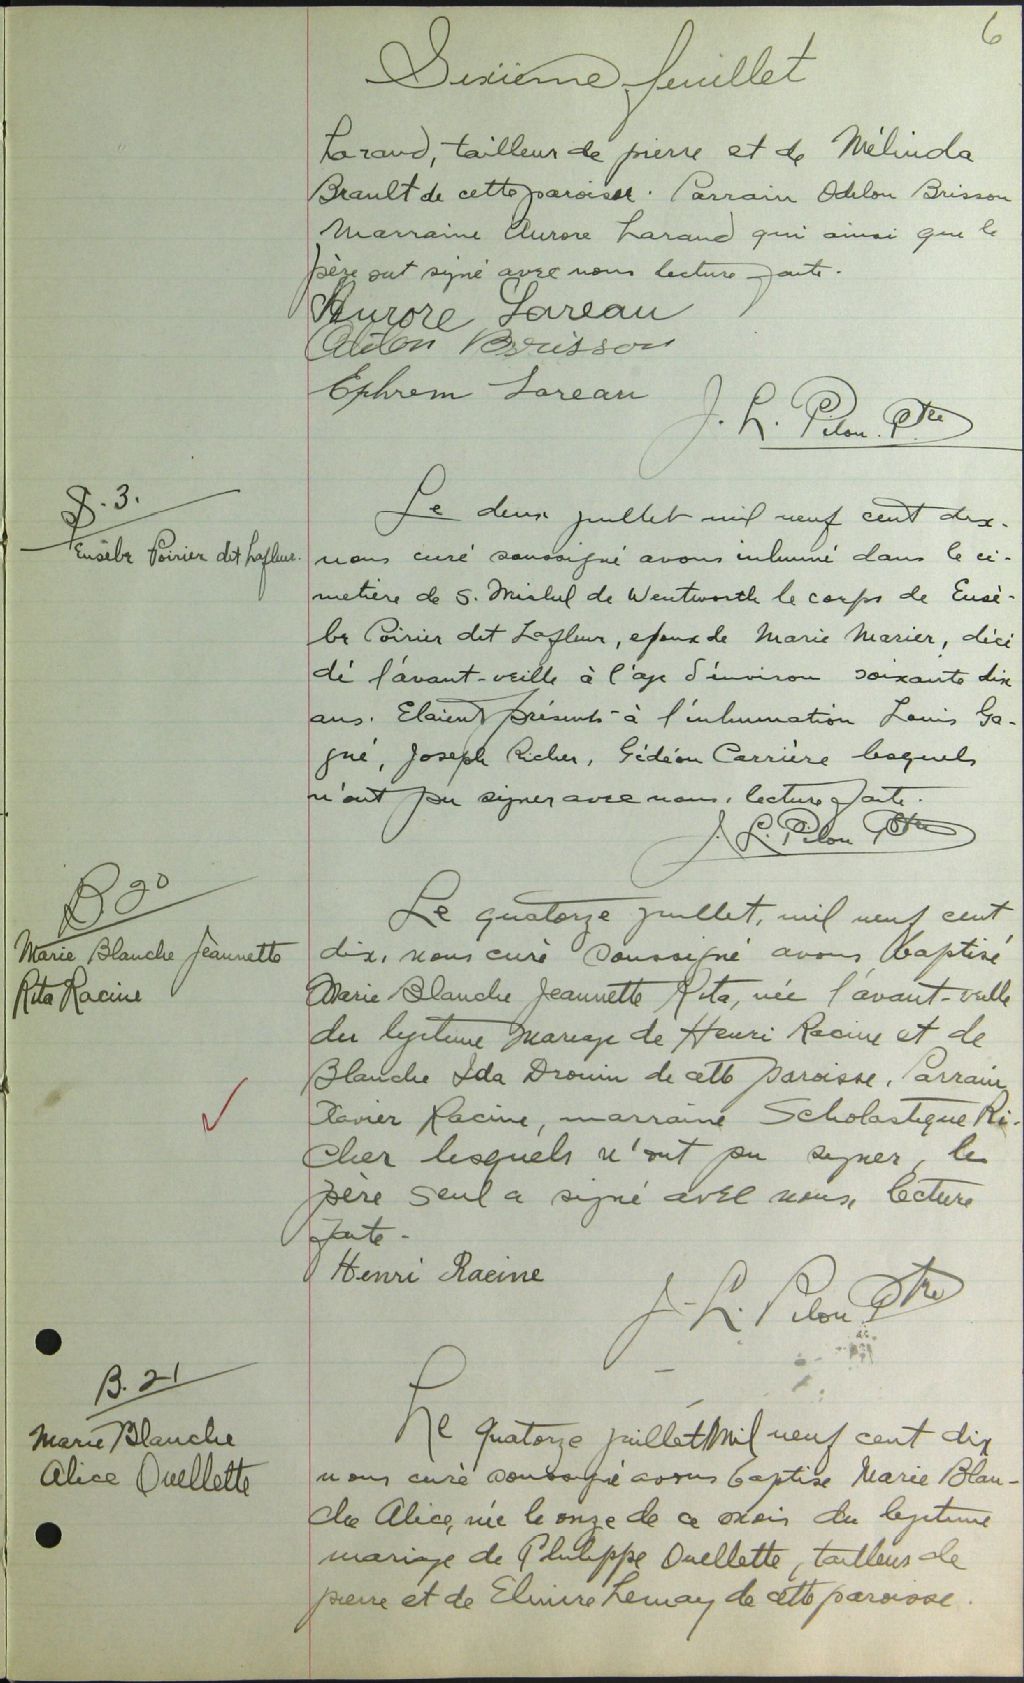 6
Sixième feuillet
Laraud, tailleur de pierre et de Mélinda
Brault de cette paroisse. Parrain Odilon Brisson
Marraine Aurore Laraud qui ainsi que le
père ont signé avec nous lecture faite.
Aurore Lareau
Odilon Brisson
Ephrem Lareau
J. L. Pilon Ptre
S. 3.
Eusèbe Poirier dit Lafleur.
Le deux juillet mil neuf cent dix.
nous curé soussigné avons inhumé dans le ci-
metière de S. Michel de Wentworth le corps de Eusè-
be Poirier dit Lafleur, epoux de Marie Marier, décé
dé l'avant-veille à l'age d'environ soixante dix
ans. Etaient présents à l'inhumation Louis Ga-
gné, Joseph Richer, Gédéon Carrière lesquels
n'ont pu signer avec nous. lecture faite.
J. L. Pilon Ptre
B 20
Marie Blanche Jeannette
Rita Racine
Le quatorze juillet, mil neuf cent
dix, nous curé soussigné avons baptisé
Marie Blanche Jeannette Rita, née l'avant-veille
du legitime mariage de Henri Racine et de
Blanche Ida Drouin de cette paroisse. Parrain
Xavier Racine, marraine Scholastique Ri-
cher lesquels n'ont pu signer, le
père seul a signé avec nous, lecture
faite.
Henri Racine
J. L. Pilon Ptre
B. 21
Marie Blanche
Alice Ouellette
Le quatorze juillet mil neuf cent dix
nous curé soussigné avons baptisé Marie Blan-
che Alice, née le onze de ce mois du legitime
mariage de Philippe Ouellette, tailleur de
pierre et de Elmire Lemay de cette paroisse.